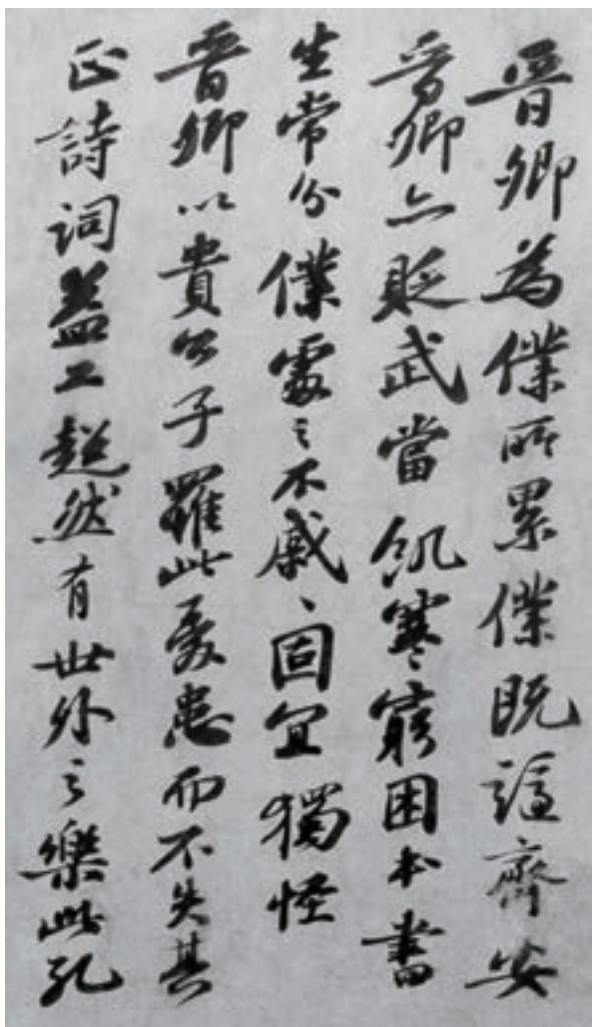 晋卿為僕所累僕既謫齊安
晋卿亦貶武當飢寒窮困本書
生常分僕處之不戚戚固宜獨怪
晋卿以貴公子罹此憂患而不失其
正詩詞益工超然有世外之樂此孔